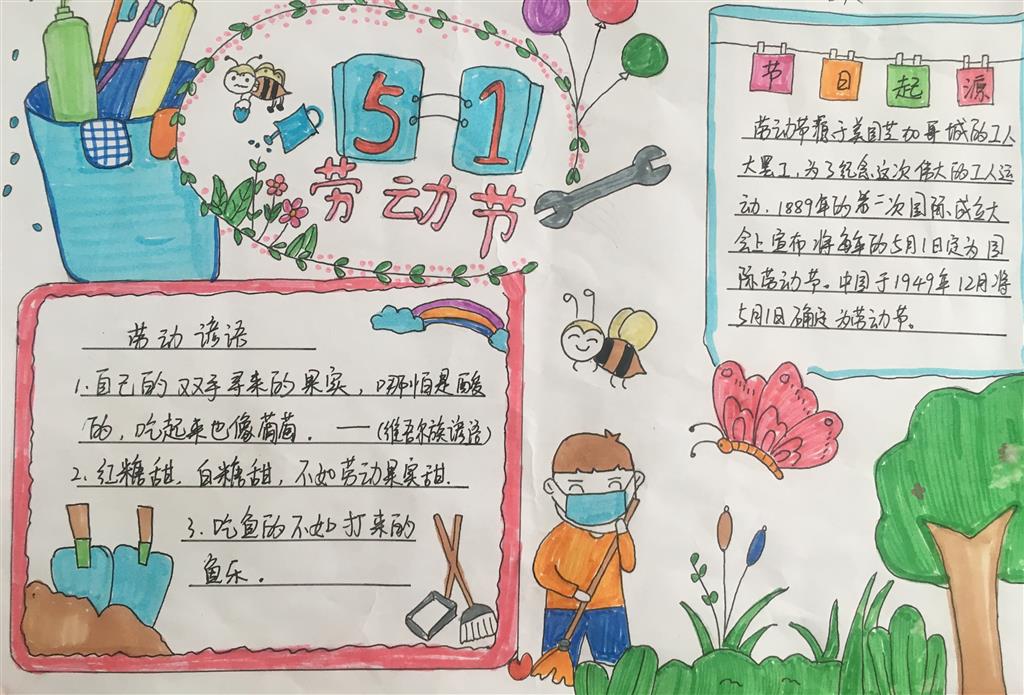 51
劳动节
节日起源
劳动节源于美国芝加哥城的工人
大罢工,为了纪念这次伟大的工人运
动,1889年的第二次国际成立大
会上宣布将每年的5月1日定为国
际劳动节。中国于1949年12月将
5月1日确定为劳动节。
劳动谚语
1.自己的双手寻来的果实,哪怕是酸
的,吃起来也像葡萄.——(维吾尔族谚语)
2.红糖甜.白糖甜,不如劳动果实甜.
3.吃鱼的不如打来的
鱼乐。